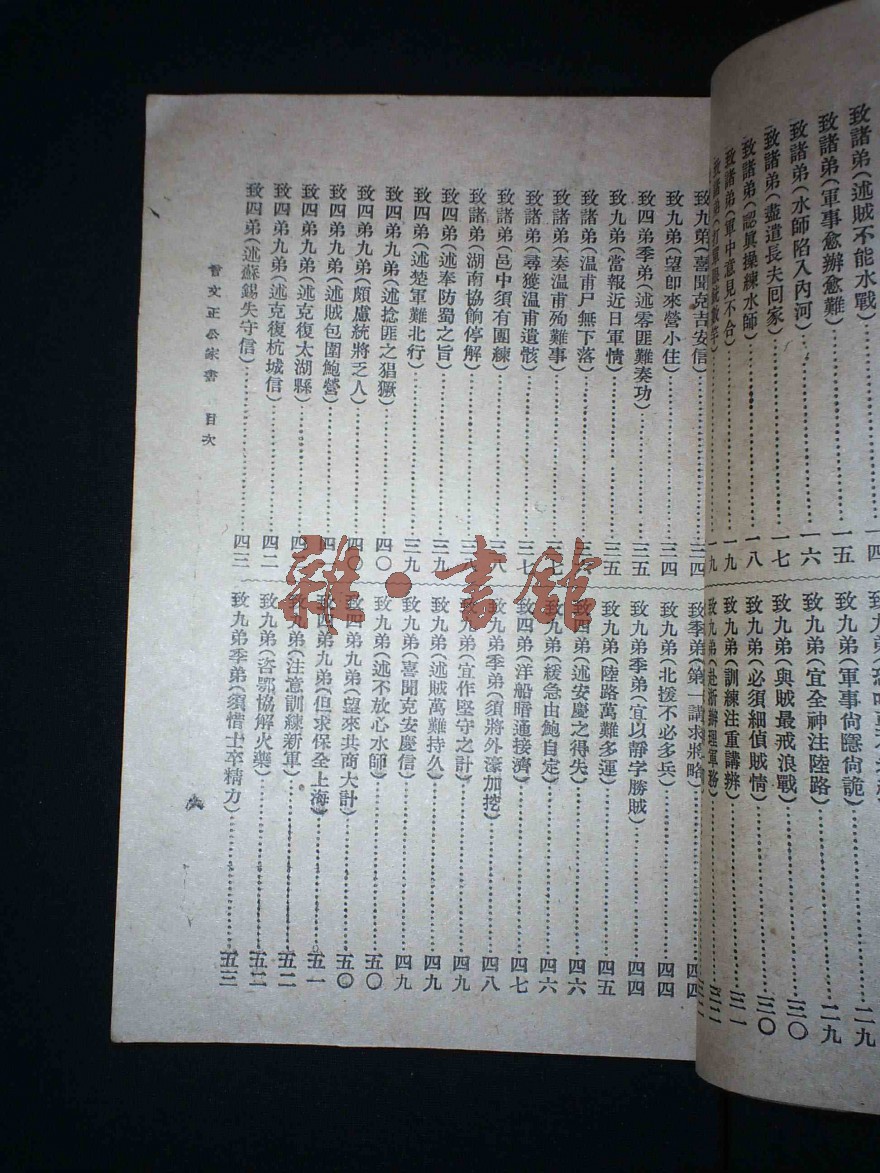 致諸弟(述賊不能水戰)……一四
致諸弟(軍事愈辦愈難)……一五
致諸弟(水師陷入內河)……一六
致諸弟(盡遣長夫回家)……一七
致諸弟(認眞操練水師)……一八
致諸弟(軍中意見不合)……一九
致諸弟……一九
致九弟……二九
致九弟(軍事尙隱尙詭)……二九
致九弟(宜全神注陸路)……三〇
致九弟(與賊最戒浪戰)……三〇
致九弟(必須細偵賊情)……三一
致九弟(訓練注重講辨)……三二
致九弟(赴浙辦理軍務)……
致九弟(喜聞克吉安信)……三四
致九弟(望即來營小住)……三四
致四弟季弟(述零匪難奏功)……三五
致九弟(當報近日軍情)……三五
致諸弟(温甫尸無下落)……三六
致諸弟(奏温甫殉難事)……三七
致諸弟(尋獲温甫遺骸)……三七
致諸弟(邑中須有團練)……三八
致諸弟(湖南協餉停解)……三八
致四弟(述奉防蜀之旨)……三九
致四弟(述楚軍難北行)……三九
致四弟九弟(述捻匪之猖獗)……四〇
致四弟九弟(頗慮統將乏人)……四〇
致四弟九弟(述賊包圍鮑營)……四
致四弟九弟(述克復太湖縣)……四
致四弟九弟(述克復杭城信)……四二
致四弟(述蘇錫失守信)……四三
致季弟(第一講求將略)……四四
致九弟(北援不必多兵)……四四
致九弟季弟(宜以靜字勝賊)……四四
致九弟(陸路萬難多運)……四五
致四弟(述安慶之得失)……四六
致九弟(緩急由鮑自定)……四六
致四弟(洋船暗通接濟)……四七
致九弟季弟(須將外濠加挖)……四八
致九弟(宜作堅守之計)……四九
致九弟(述賊萬難持久)……四九
致九弟(喜聞克安慶信)……四九
致九弟(述不放心水師)……五〇
致四弟九弟(望來共商大計)……五〇
致四弟九弟(但求保全上海)……五一
致九弟(注意訓練新軍)……五二
致九弟(咨鄂協解火藥)……五二
致九弟季弟(須惜士卒精力)……五三
曾文正公家書 目次
六
雜·書館